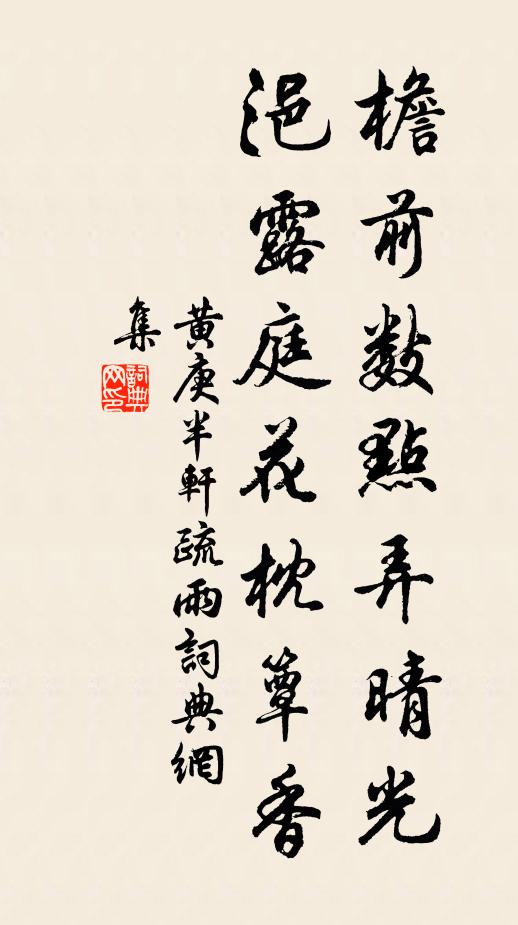 檐前數點弄晴光
浥露庭花枕簟香
黄庚半軒疏雨詞典網
集
詞典網印